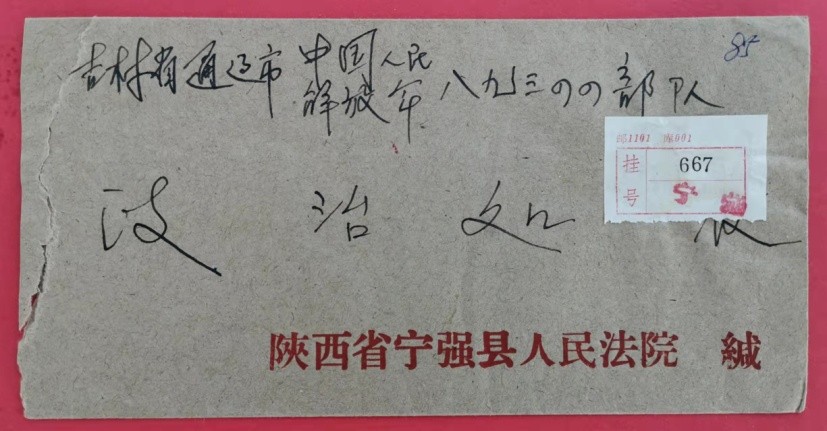 85
吉林省通辽市 中国人民
解放军 八九三〇〇部队
1101 001
挂 667
号
政 治 处 收
陝西省宁强县人民法院 緘